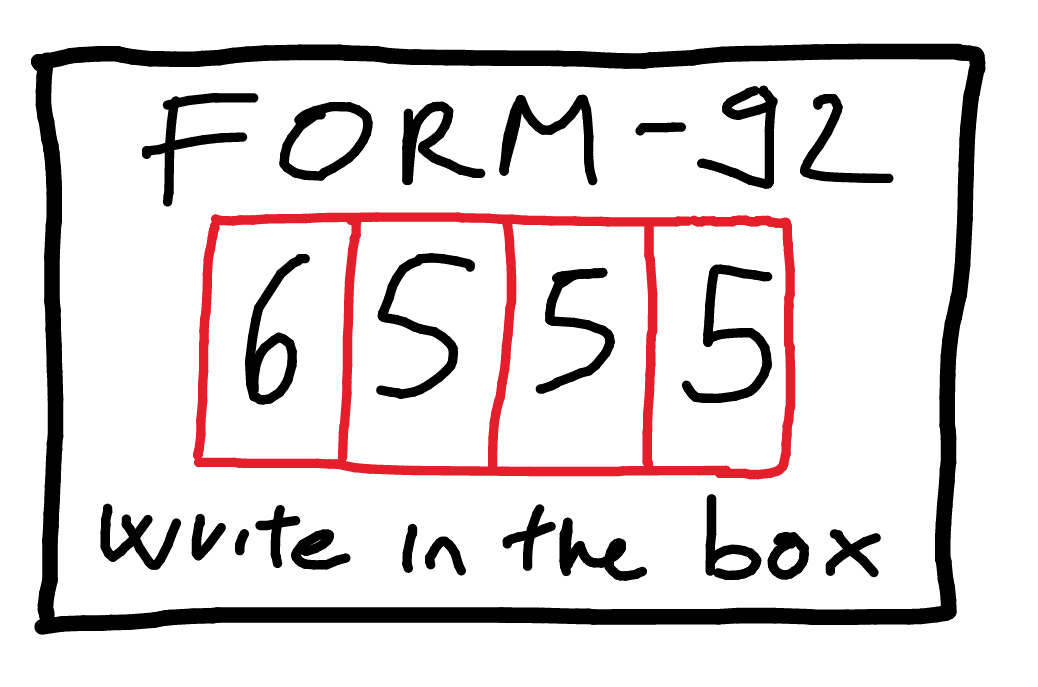 FORM-92
6555
write in the box